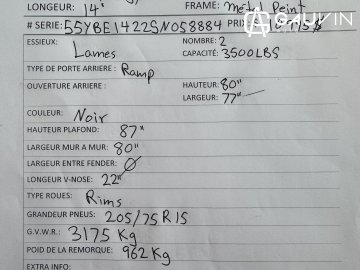 LONGEUR: 14' FRAME: Métal Peint
GAUVIN
# SERIE: 55YBE1422SN058884 PRIX
ESSIEUX: NOMBRE: 2
Lames CAPACITÉ: 3500LBS
TYPE DE PORTE ARRIERE: Ramp
OUVERTURE ARRIERE: HAUTEUR: 80"
LARGEUR: 77"
COULEUR: Noir
HAUTEUR PLAFOND: 87"
LARGEUR MUR A MUR: 80"
LARGEUR ENTRE FENDER: Ø
LONGEUR V-NOSE: 22"
TYPE ROUES: Rims
GRANDEUR PNEUS: 205/75R15
G.V.W.R.: 3175 Kg
POID DE LA REMORQUE: 962 Kg
EXTRA INFO: